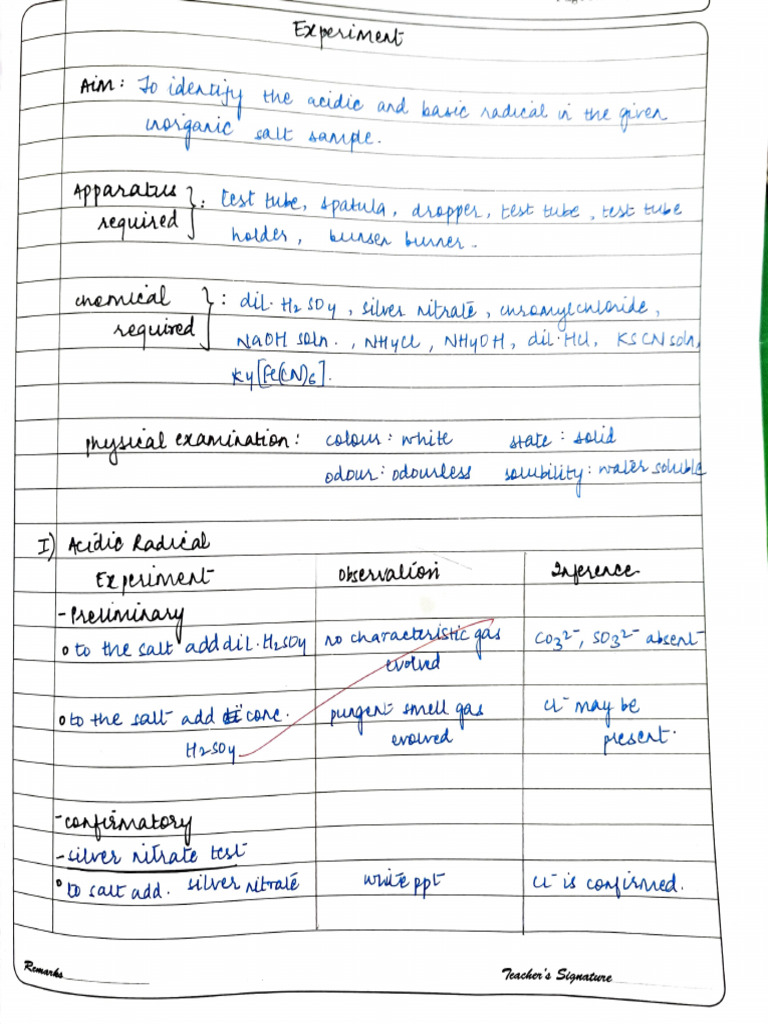 Experiment
Aim: To identify the acidic and basic radical in the given
inorganic salt sample.
Apparatus required }: test tube, spatula, dropper, test tube, test tube
holder, bunsen burner.
chemical required }: dil. H2SO4, silver nitrate, chromylchloride,
NaOH soln., NH4Cl, NH4OH, dil. HCl, KSCN soln,
K4[Fe(CN)6].
physical examination: colour: white state: solid
odour: odourless solubility: water soluble
I) Acidic Radical
Experiment Observation Inference
- Preliminary
to the salt add dil. H2SO4 no characteristic gas CO3²⁻, SO3²⁻ absent
evolved
to the salt add conc. pungent smell gas Cl⁻ may be
H2SO4 evolved present.
- confirmatory
- silver nitrate test
to salt add. silver nitrate white ppt Cl⁻ is confirmed.
Remarks Teacher's Signature